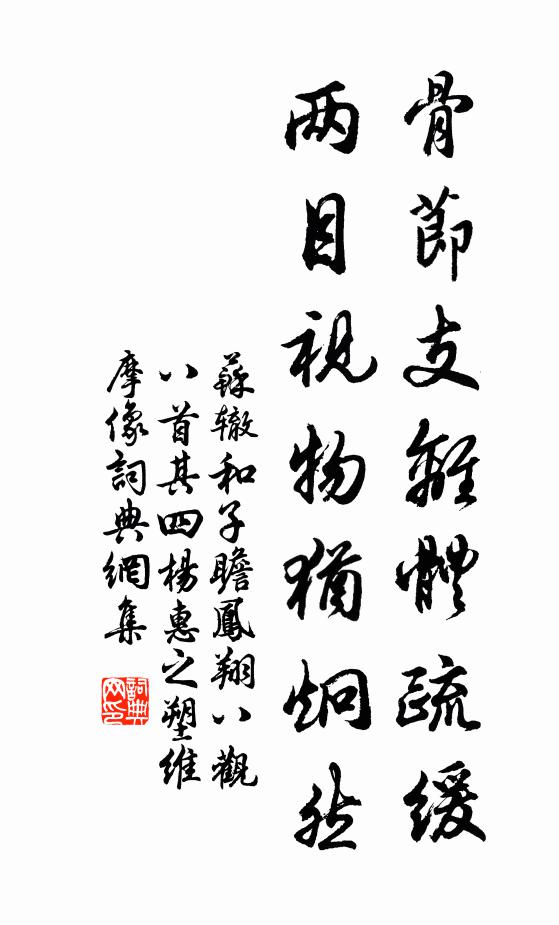 骨節支離體疏緩
两目視物猶炯然
蘇辙和子瞻鳳翔八觀
八首其四楊惠之塑維
摩像詞典網集
詞典
网印